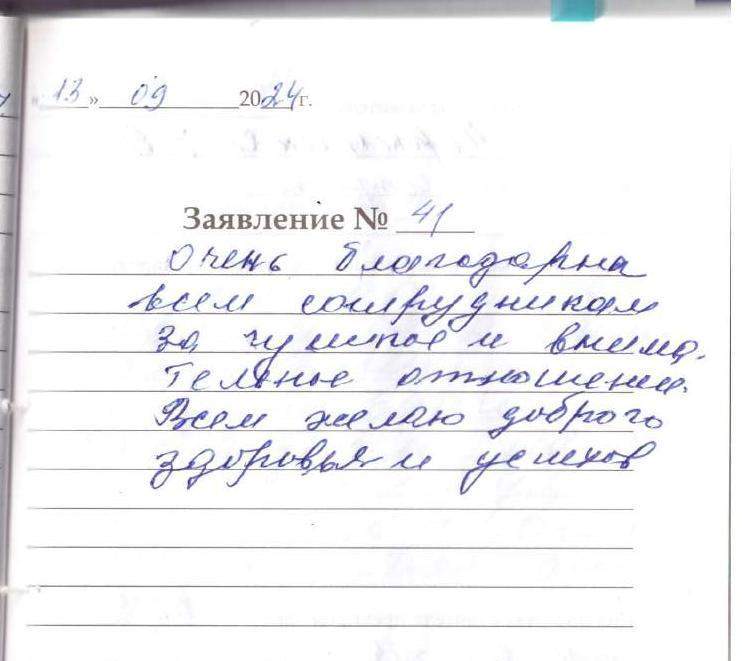 «13» 09 2024г.
Заявление № 41
Очень благодарна
всем сотрудникам
за чуткое и внима-
тельное отношение.
Всем желаю доброго
здоровья и успехов